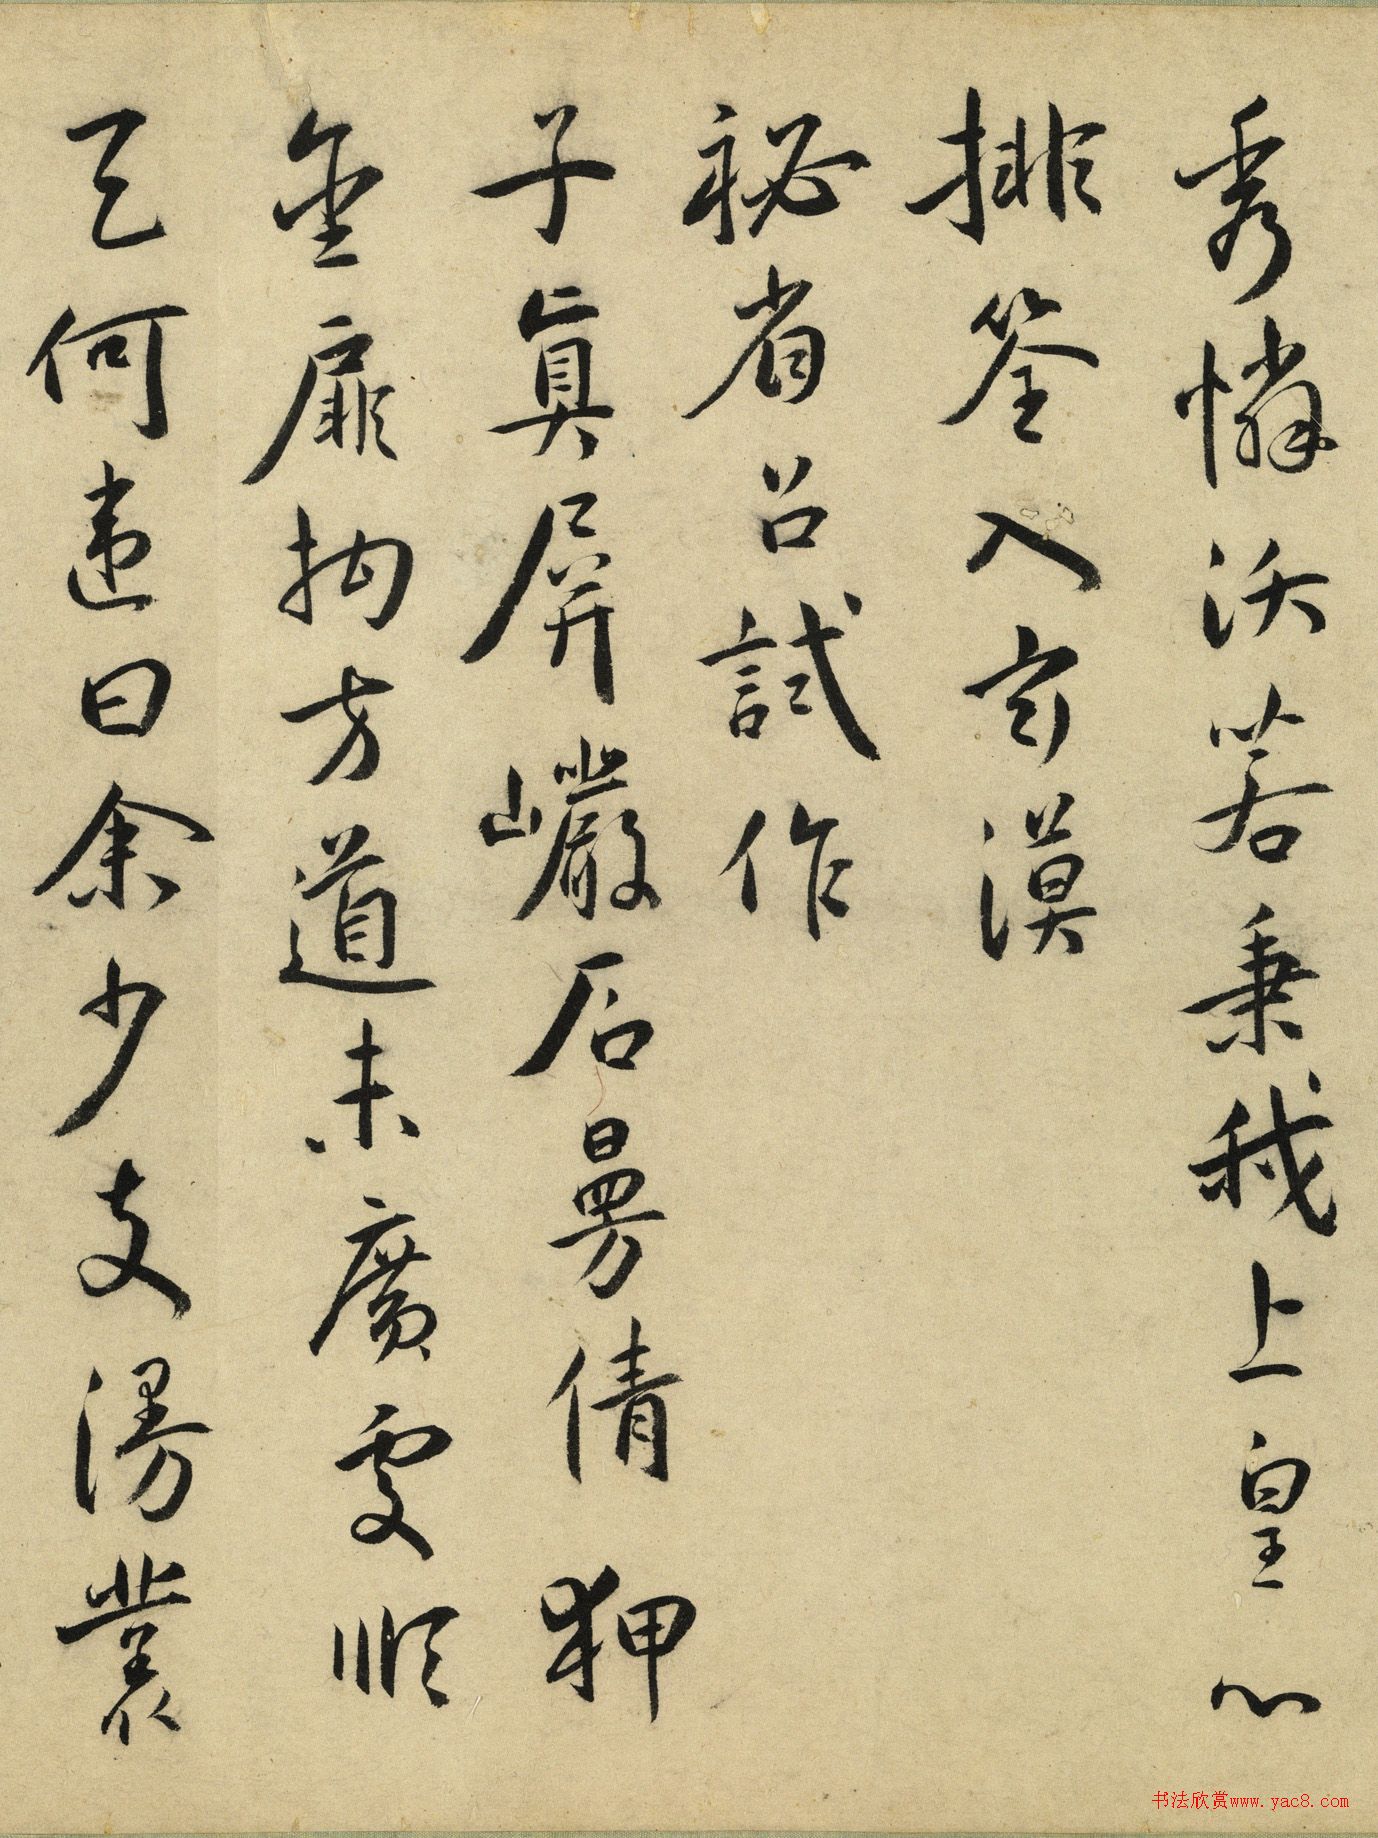 秀憐沃若秉我上皇心
排筌入玄漠
祕省召試作
子真屏巖石曼倩狎
金扉拘方道未廣處順
天何違曰余少支漫
书法欣赏www.yac8.com